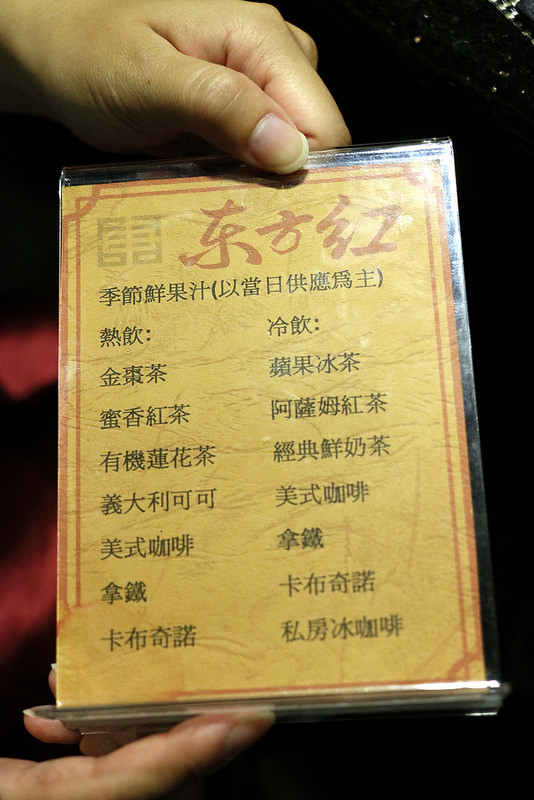 东方红
季節鮮果汁(以當日供應為主)
熱飲:
金棗茶
蜜香紅茶
有機蓮花茶
義大利可可
美式咖啡
拿鐵
卡布奇諾
冷飲:
蘋果冰茶
阿薩姆紅茶
經典鮮奶茶
美式咖啡
拿鐵
卡布奇諾
私房冰咖啡